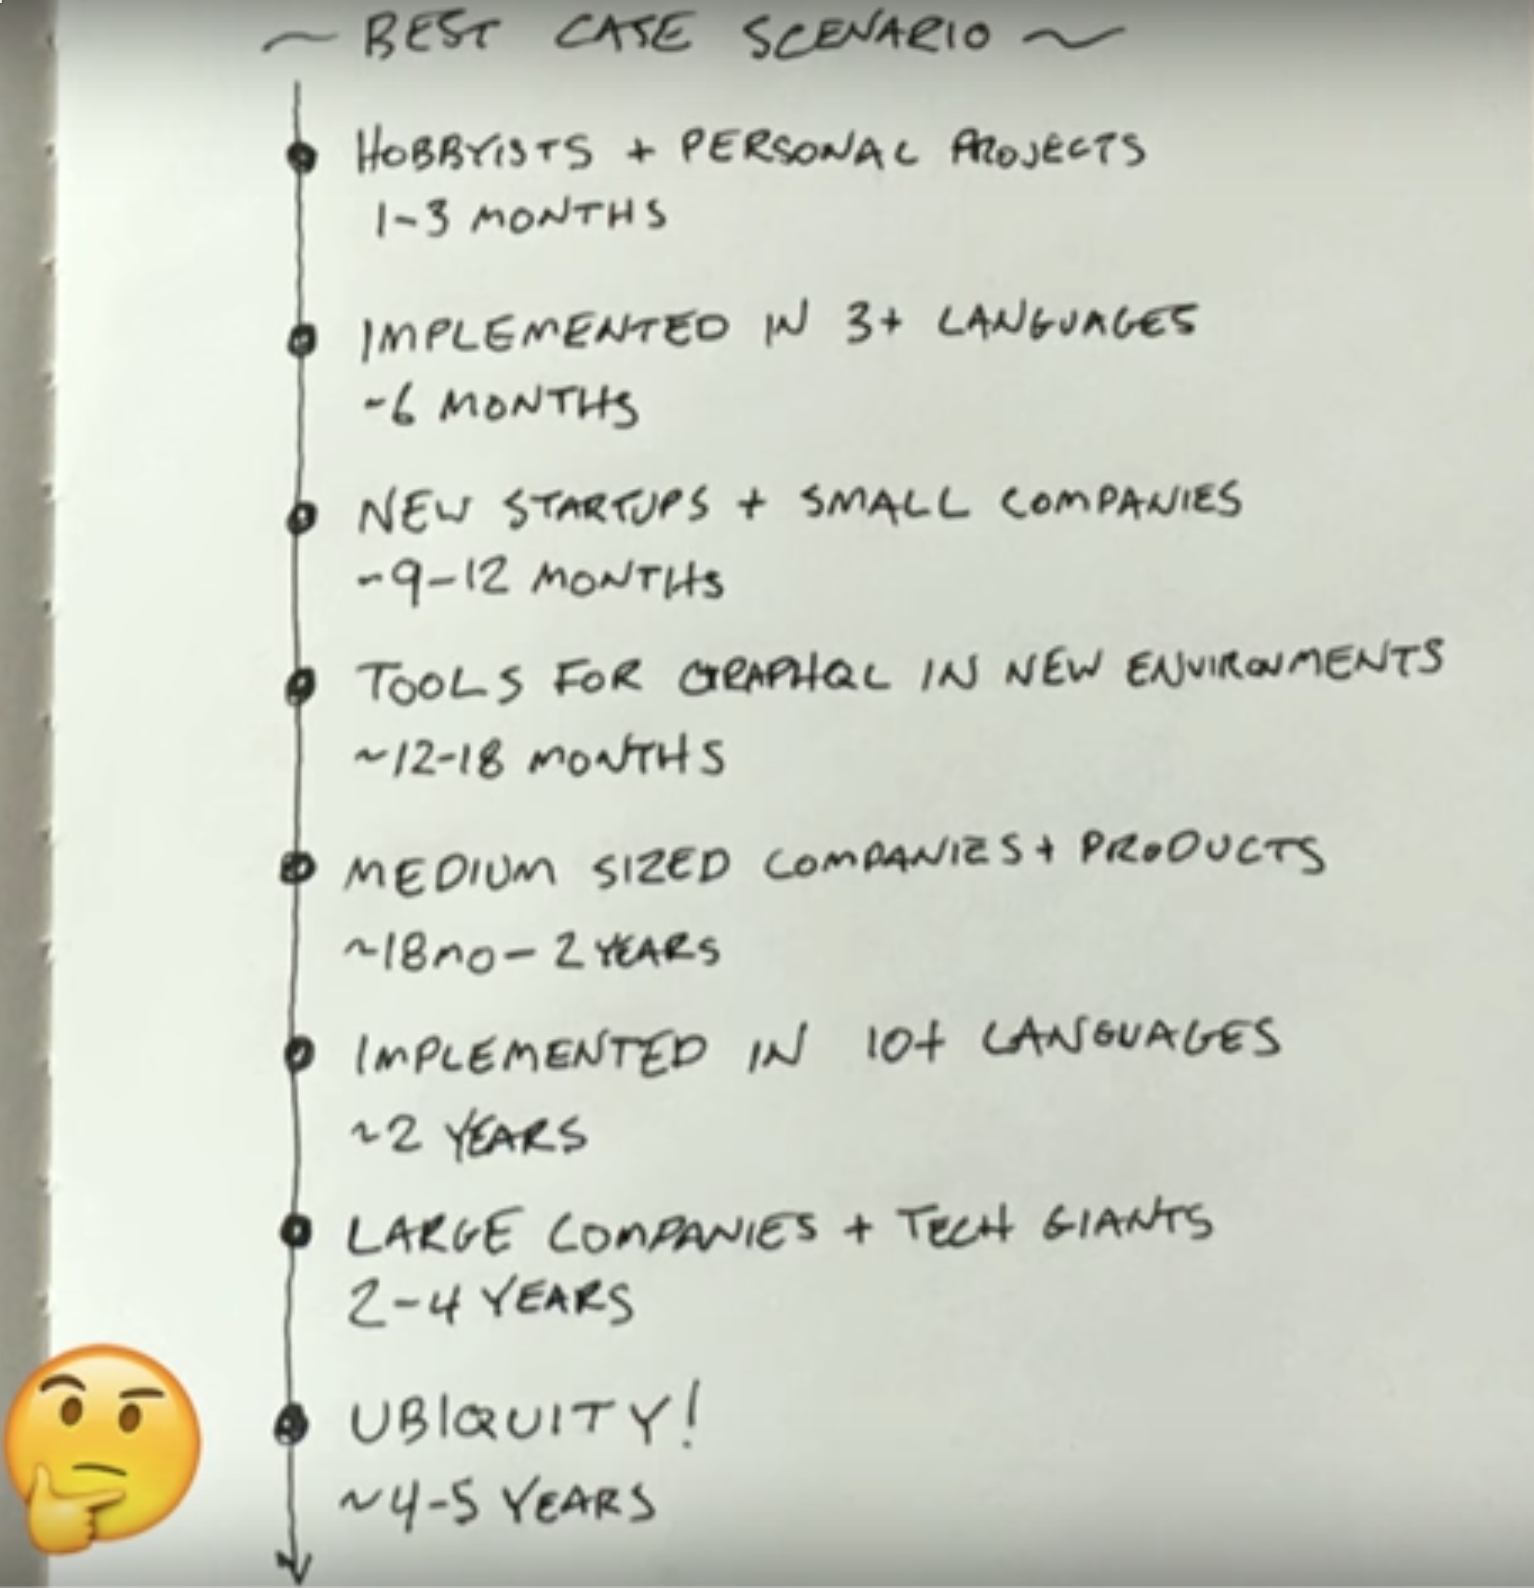 ~ BEST CASE SCENARIO ~
HOBBYISTS + PERSONAL PROJECTS
1-3 MONTHS
IMPLEMENTED IN 3+ LANGUAGES
~6 MONTHS
NEW STARTUPS + SMALL COMPANIES
~9-12 MONTHS
TOOLS FOR GRAPHQL IN NEW ENVIRONMENTS
~12-18 MONTHS
MEDIUM SIZED COMPANIES + PRODUCTS
~18mo - 2 YEARS
IMPLEMENTED IN 10+ LANGUAGES
~2 YEARS
LARGE COMPANIES + TECH GIANTS
2-4 YEARS
UBIQUITY!
~4-5 YEARS